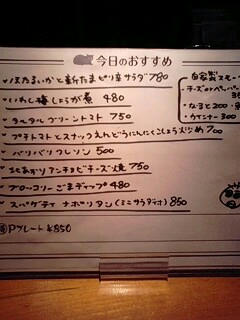 今日のおすすめ
・ほたるいかと新たまピリ辛サラダ 780
・いわし梅しょうが煮 480
・タルタルグリーントマト 750
・プチトマトとスナックえんどうにんにくしょう油炒め 700
・バリバリクレソン 500
・北あかりアンチョビチーズ焼 750
・ブロッコリーごまディップ 480
・スパゲティナポリタン(ミニサラダ付) 850
Pプレート ¥850
自家製スモーク
・チーズ
・ウインナー 300